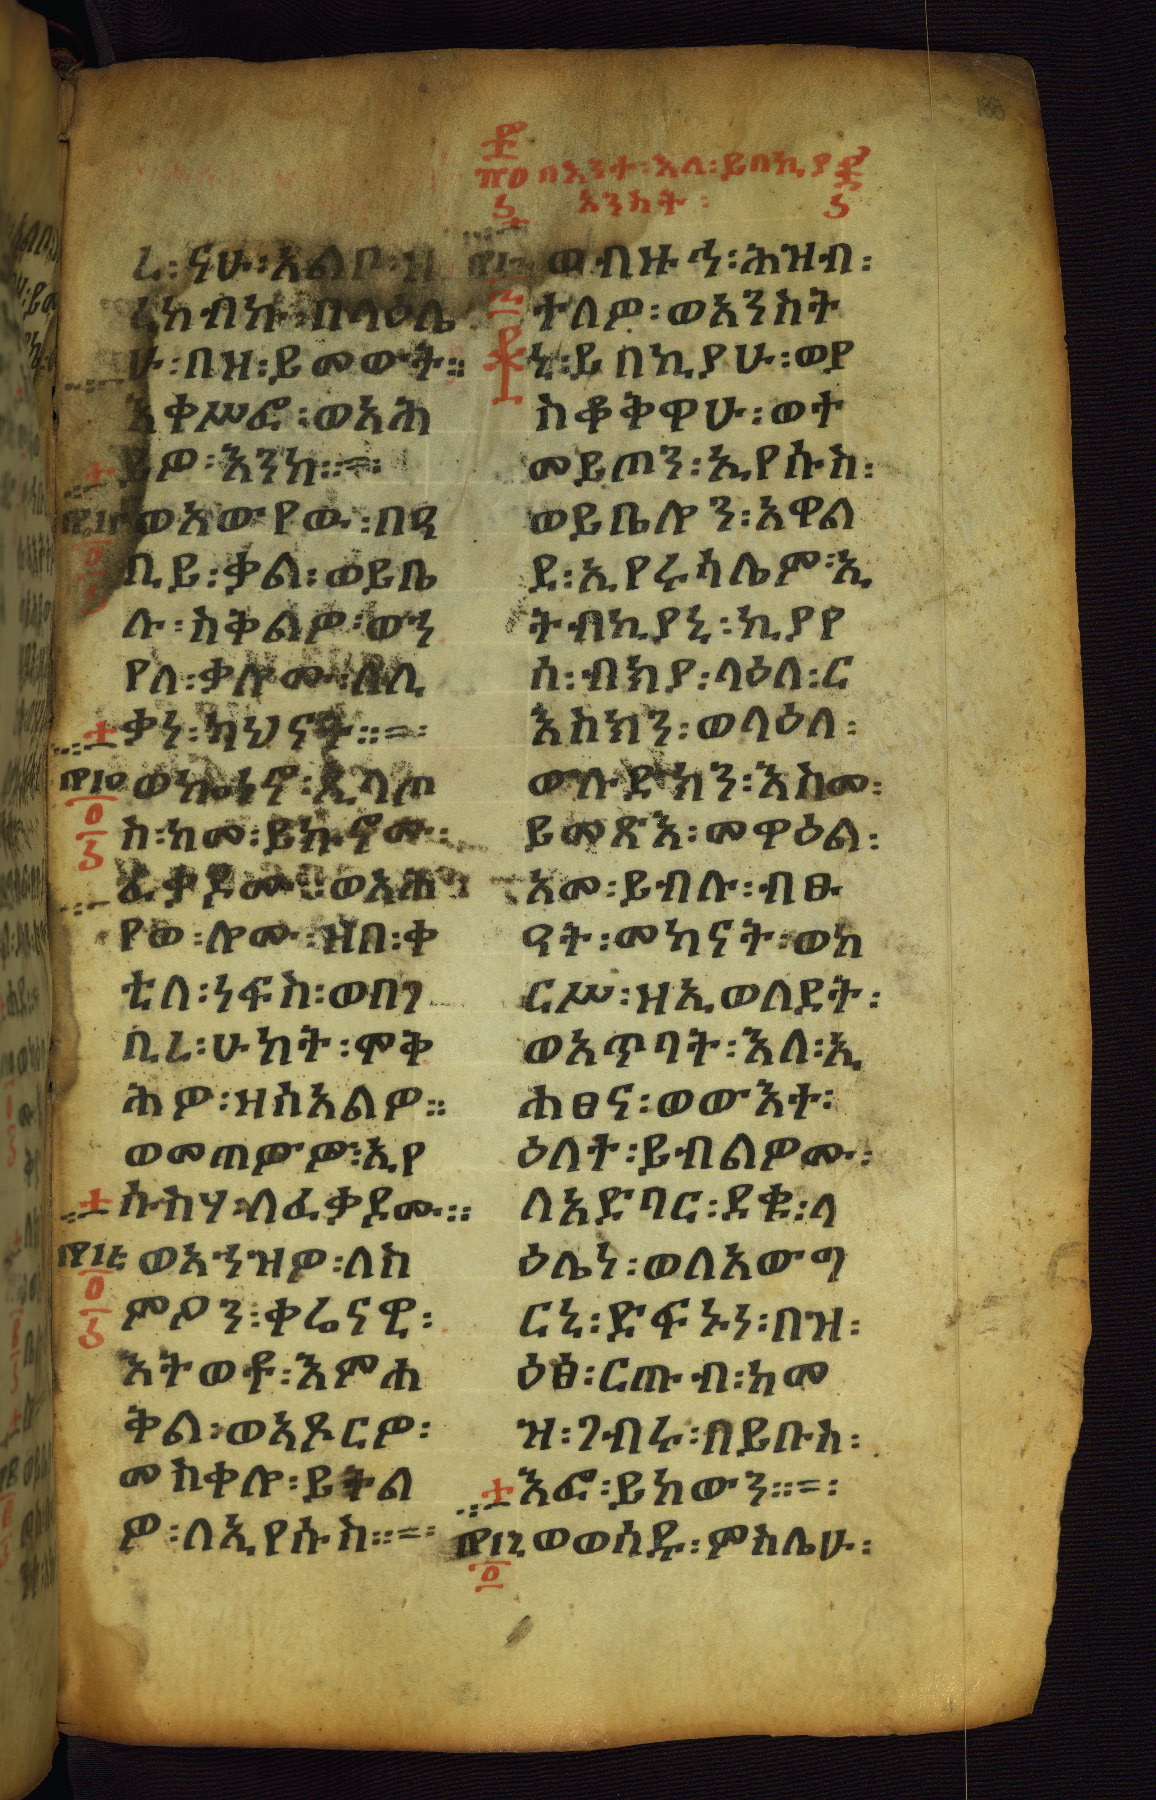 በእንተ፡እለ፡ይበኪያ
እንስት፡
ረ፡ናሁ፡አልቦ፡ዝ
ረከብኩ፡በላዕሌ
ሁ፡በዝ፡ይመውት፡፡
እቀሥፎ፡ወአሕ
ይዎ፡እንከ፡፡=፡
ወአውየው፡በዓ
ቢይ፡ቃል፡ወይቤ
ሉ፡ስቅልዎ፡ውኂ
የለ፡ቃሎሙ፡ለሊ
ቃነ፡ካህናት፡፡=፡
ወኰነኖ፡ጲላጦ
ስ፡ከመ፡ይኩኖሙ፡
ፈቃዶሙ፡ወአሕ
የወ፡ሎሙ፡ዝበ፡ቀ
ቲለ፡ነፍስ፡ወበገ
ቢረ፡ሁከት፡ሞቅ
ሕዎ፡ዝስእልዎ፡፡
ወመጠውዎ፡ኢየ
ሱስሃ፡ለፈቃዶሙ፡፡
ወአኀዝዎ፡ለስ
ምዖን፡ቀሬናዊ፡
እትወቶ፡እምሐ
ቅል፡ወአጾርዎ፡
መስቀሎ፡ይትል
ዎ፡ለኢየሱስ፡፡=፡
ወብዙኅ፡ሕዝብ፡
ተለዎ፡ወእንስት
ኒ፡ይበኪያሁ፡ወየ
ስቆቅዋሁ፡ወተ
መይጦን፡ኢየሱስ፡
ወይቤሎን፡አዋል
ደ፡ኢየሩሳሌም፡ኢ
ትብኪያኒ፡ኪያየ
ሰ፡ብክያ፡ላዕለ፡ር
እስክን፡ወላዕለ፡
ውሉድክን፡እስመ፡
ይመጽእ፡መዋዕል፡
አመ፡ይብሉ፡ብፁ
ዓት፡መካናት፡ወከ
ርሥ፡ዝኢወለደት፡
ወአጥባት፡እለ፡ኢ
ሐፀና፡ወውእተ፡
ዕለት፡ይብልዎሙ፡
ለአድባር፡ደቁ፡ላ
ዕሌነ፡ወለአውግ
ርኒ፡ድፍኑነ፡በዝ፡
ዕፅ፡ርጡብ፡ከመ
ዝ፡ገብሩ፡በይቡስ፡
እፎ፡ይከውን፡፡=፡
ወወሰዱ፡ምስሌሁ፡